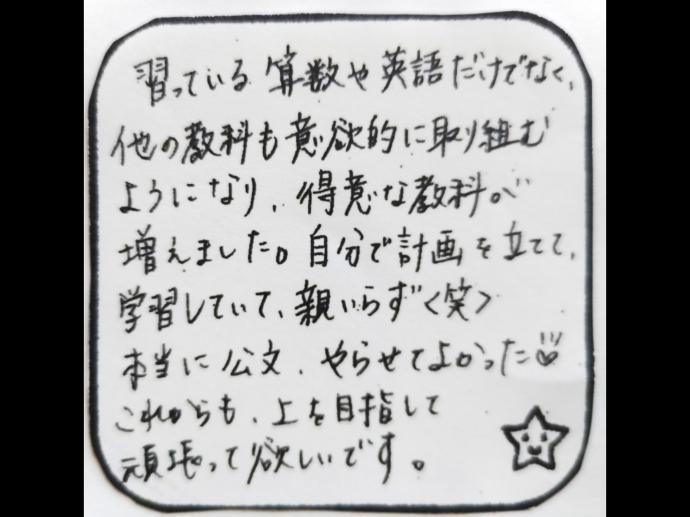 習っている算数や英語だけでなく、
他の教科も意欲的に取り組む
ようになり、得意な教科が
増えました。自分で計画を立てて、
学習していて、親いらず<笑>
本当に公文、やらせてよかった
これからも、上を目指して
頑張って欲しいです。